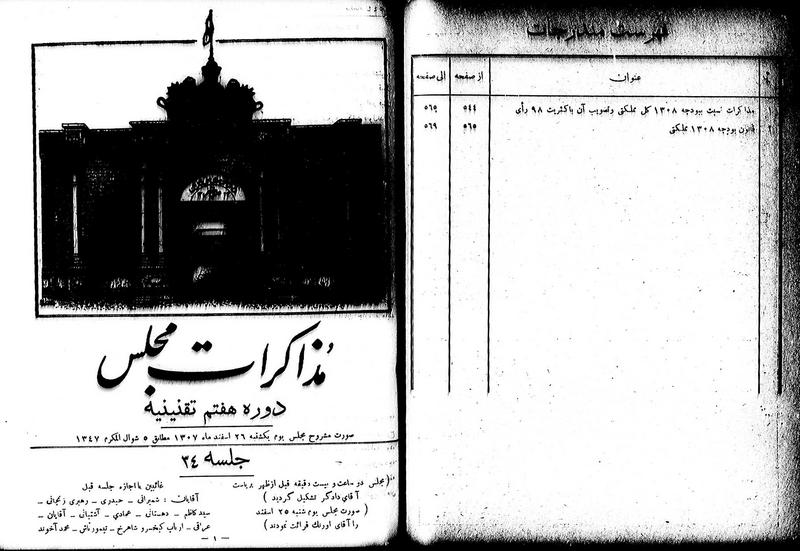 مذاکرات مجلس
دوره هفتم تقنینیه
صورت مشروح مجلس یوم یکشنبه ۲۶ اسفند ماه ۱۳۰۷ مطابق ۵ شوال المکرم ۱۳٤۷
جلسه ۳٤
(مجلس دو ساعت و بیست دقیقه قبل از ظهر بریاست
آقای دادگر تشکیل گردید)
(صورت مجلس یوم شنبه ۲۵ اسفند
را آقای اورنگ قرائت نمودند)
غائبین با اجازه جلسه قبل
آقایان : شمیرانی ـ حیدری ـ رهبری زنجانی ـ
سید کاظم ـ دهستانی ـ عمادی ـ آشتیانی ـ آقایان ـ
عراقی ـ ارباب کیخسرو شاهرخ ـ تیمورتاش ـ محمد آخوند
ـ ۱ ـ
فهرست مندرجات
عنوان از صفحه الی صفحه
مذاکرات نسبت ببودجه ۱۳۰۸ کل مملکتی وتصویب آن باکثریت ۹۸ رأی ٥٤٤ ٥٦٥
قانون بودجه ۱۳۰۸ مملکتی ٥٦٥ ٥٦۹